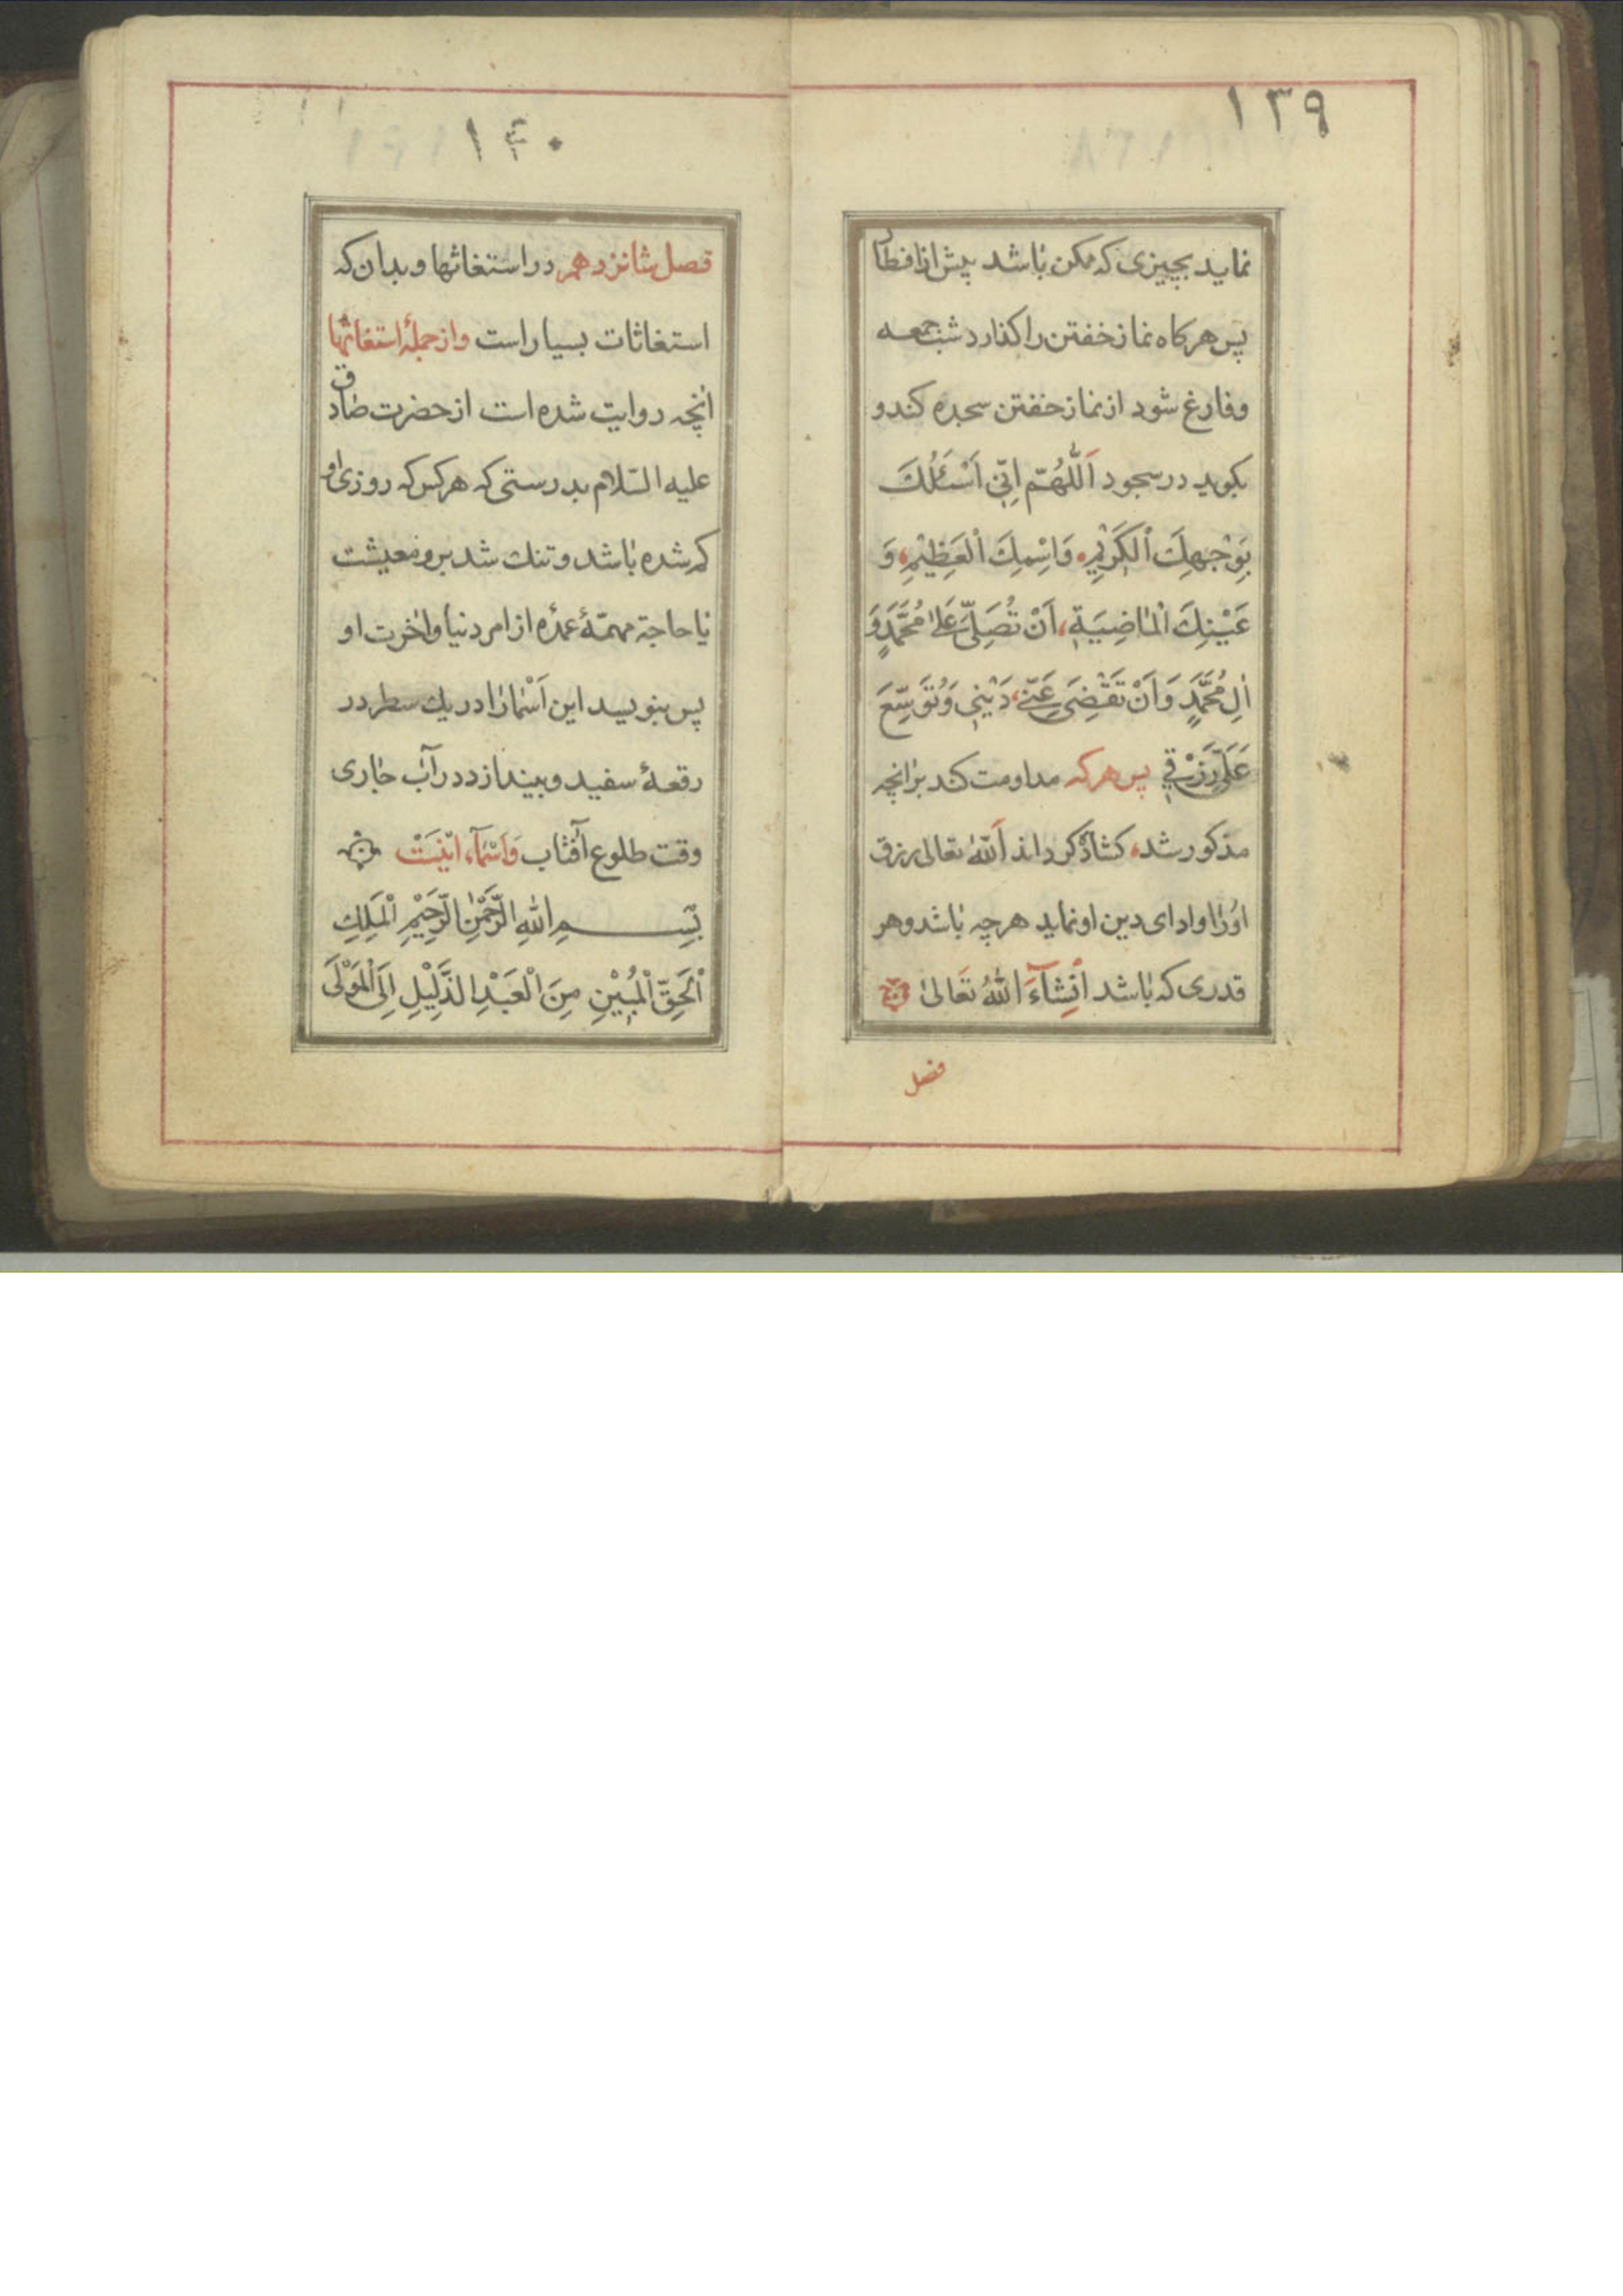 ١٣٩
نماید بچیزی که ممکن باشد پیش از افطار
پس هرکاه نماز خفتن را کذارد شب جمعه
و فارغ شود از نماز خفتن سجده کند و
بکوید در سجود اَللّٰهُمَّ اِنّی اَسْئَلُكَ
بِوَجْهِكَ الْكَرِیْمِ وَاسْمِكَ الْعَظِیْمِ وَ
عَیْنِكَ الْمٰاضِیَةِ اَنْ تُصَلِّیَ عَلیٰ مُحَمَّدٍ وَ
اٰلِ مُحَمَّدٍ وَ اَنْ تَقْضِیَ عَنّی دَیْنِی وَ تُوَسِّعَ
عَلَیَّ رِزْقِی پس هرکه مداومت کند بر انچه
مذکور شد کشاده کرداند اَللّٰهُ تعالی رزق
او را و ادای دین او نماید هرچه باشد و هر
قدری که باشد اَنِشآءَ اللّٰهُ تَعَالیٰ
فصل
١٤٠
فصل شانزدهم در استغاثها و بدان که
استغاثات بسیار است و از جملهٔ استغاثها
انچه روایت شده است از حضرت صادق
علیه السّلام بدرستی که هرکس که روزی او
کم شده باشد و تنك شد بر او معیشت
یا حاجة مهمّهٔ عمدّه از امر دنیا و اخرت او
پس بنویسد این اَسْمٰا رٰا در یك سطر در
رقعهٔ سفید و بیندازد در آب جٰاری
وقت طلوع آفتاب وَاَسْمٰآء ایْنَسْت
بِسْــمِ اللّٰهِ الرَّحْمٰنِ الرَّحِیْمِ الْمَلِكِ
الْحَقِّ الْمُبِیْنِ مِنَ الْعَبْدِ الذَّلِیْلِ اِلَی الْمَوْلَی